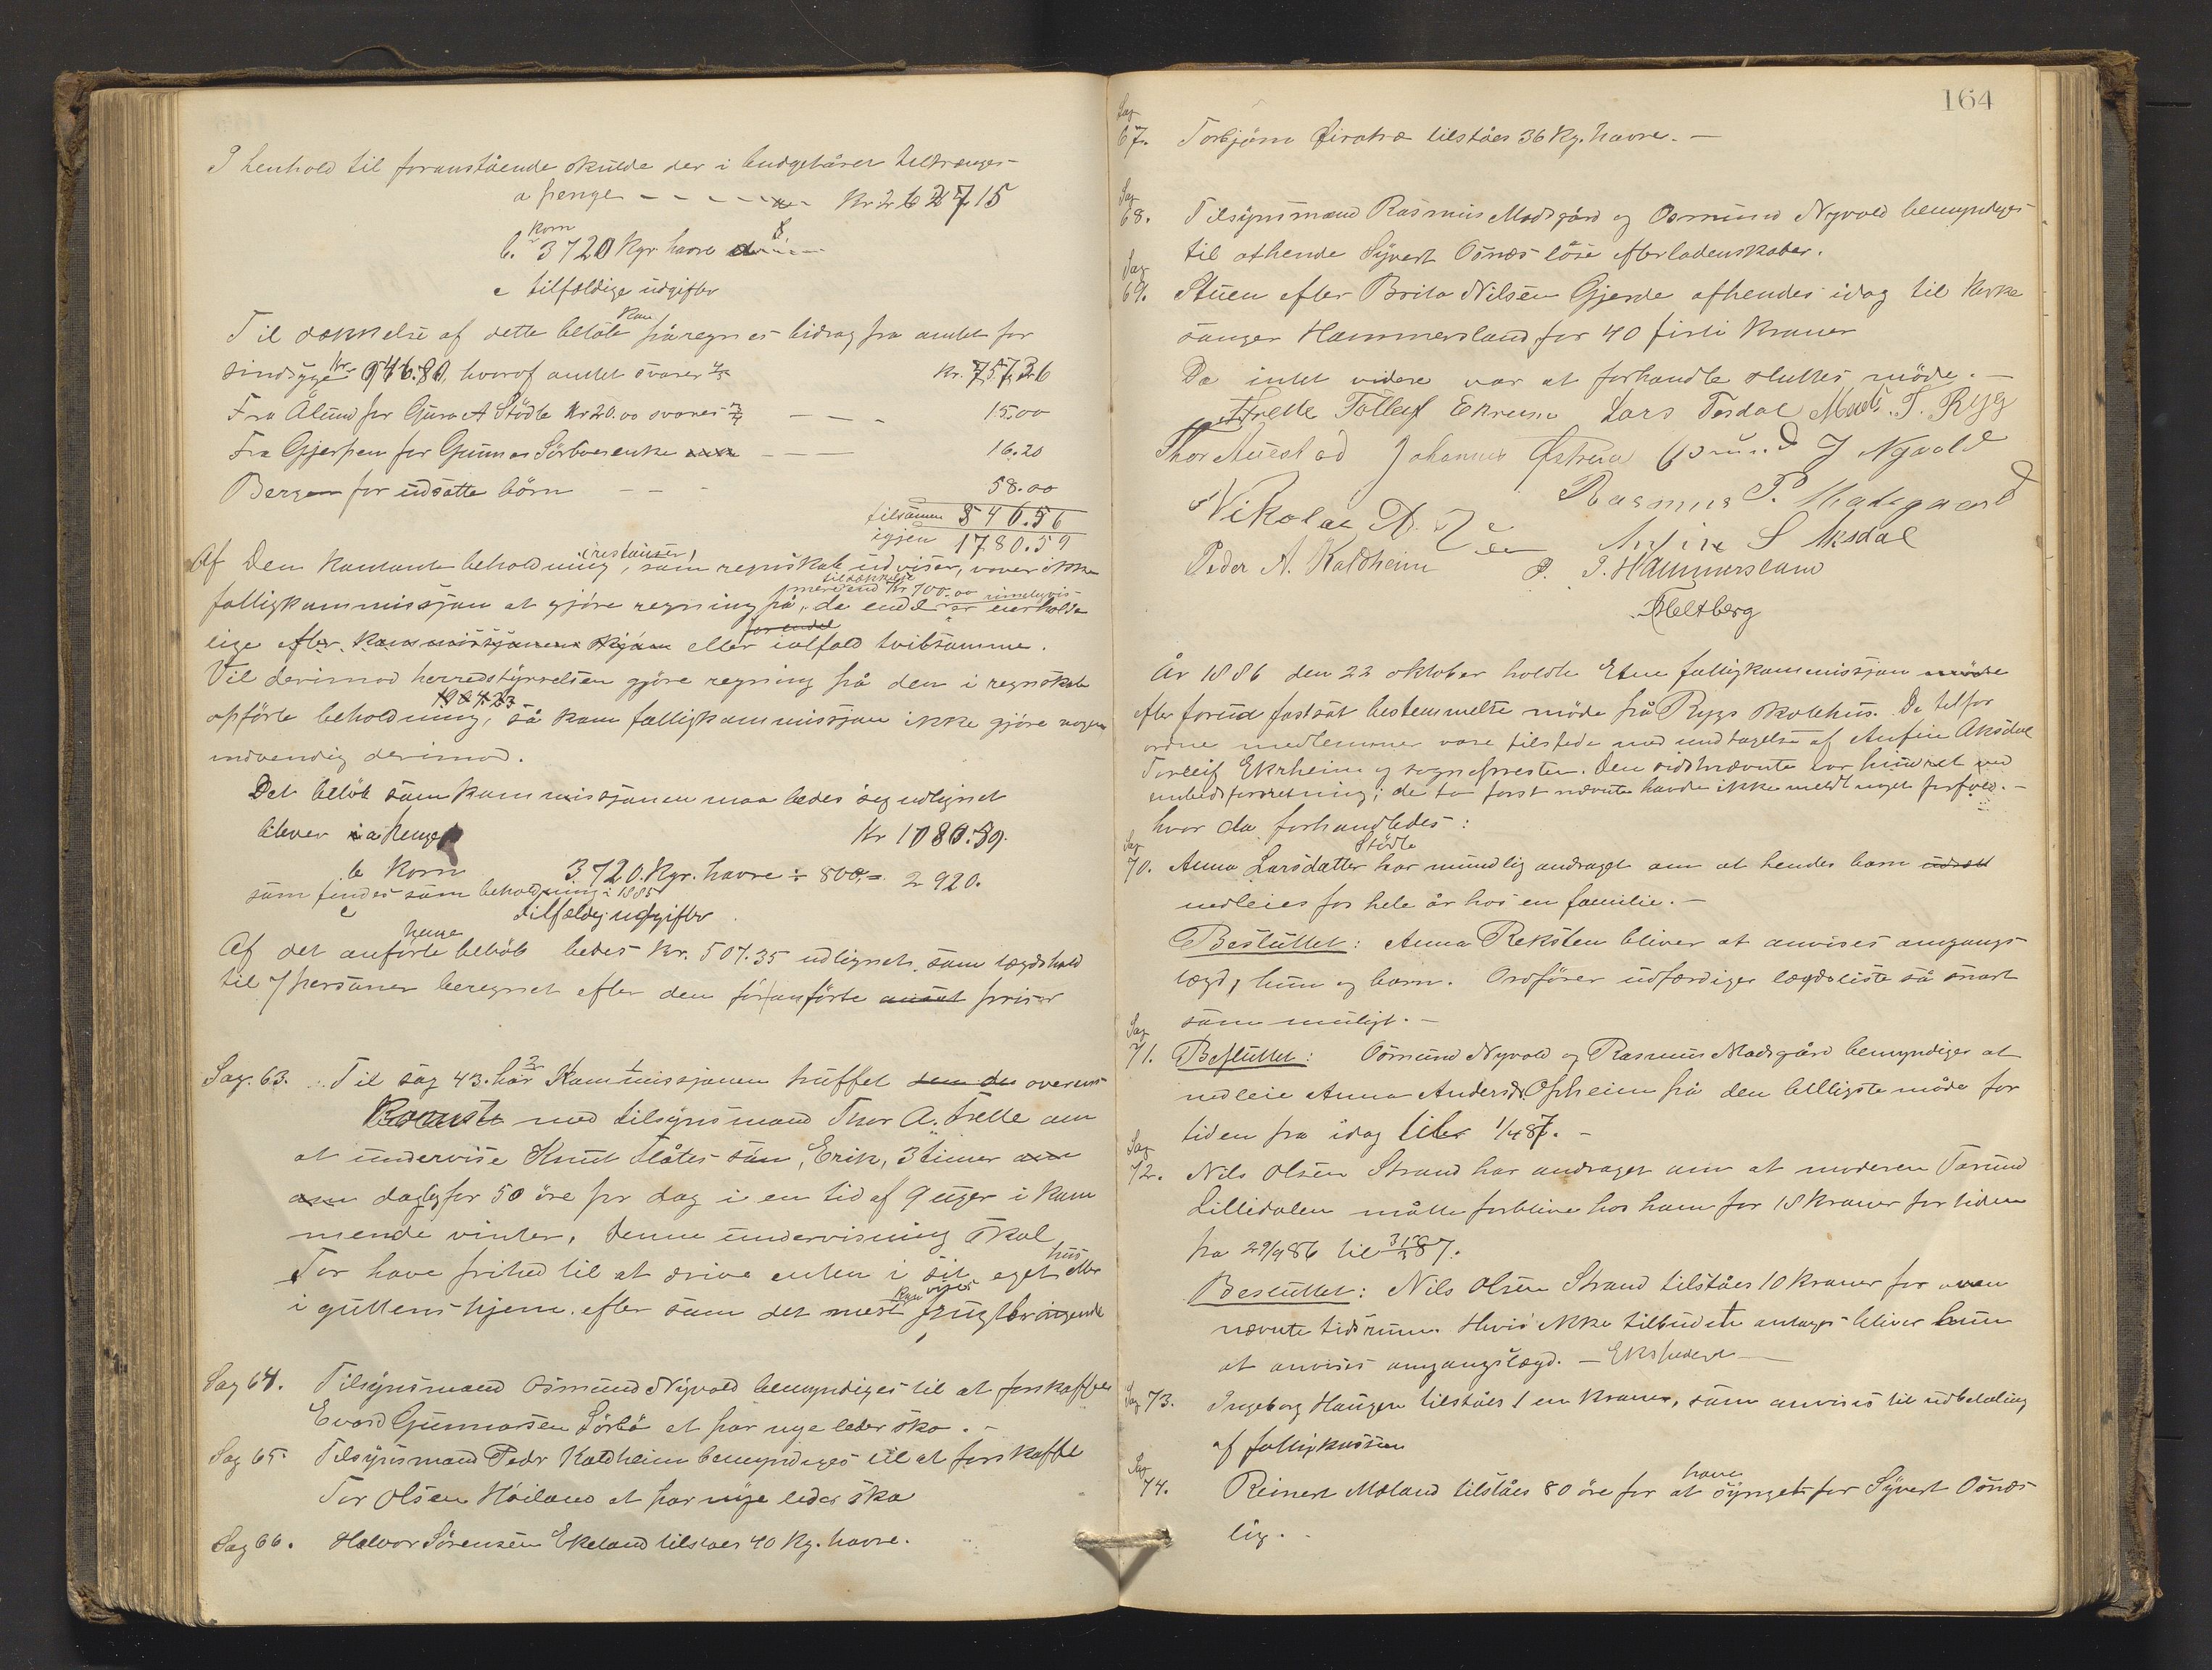 I henhold til foranstående skulde der i budgetåret tiltrænges
a penge - - - - - Kr 2627 15
korn
b. 3720 Kgr havre
c tilfældige udgifter
kan
Til dækkelse af dette beløb påregnes bidrag fra amtet for
sindsyge Kr 946.80, hvoraf amtet svarer 4/5 Kr. 757.36
Fra Ålund for Guro A Stödle Kr 20.00 svarer 3/4 - - 15.00
Fra Gjerpen for Gunnar Sörböes enke - - 16.20
Bergen for udsatte börn - - - 58.00
tilsamen 846.56
igjen 1780.59
(restanser)
Af Den kontante beholdning, som regnskab udviser, vover ikke
til dækkelse
mere end Kr 700.00 rimeligvis
fattigkommissjon at gjöre regning på, da endel er uerholde
for endel
lige efter kommissjonens skjön eller ialfald tvilsomme.
Vil derimod herredstyrrelsen gjöre regning på den i regnskab
opförte beholdning, så kan fattigkommissjon ikke gjöre nogen
indvending derimod.
Det belöb som kommissjonen maa bedes sig udlignet
bliver i a Penge Kr 1080.59.
b Korn 3720. Kgr. havre ÷ 800 = 2920.
som findes som beholdning i 1885
c tilfældig udgifter
henne
Af det anförte belöb bedes Kr. 507.35 udlignet som lægdshold
til 7 personer beregnet efter den foranförte ansat priser
Sag. 63. Til sag 43. har Kommissjonen truffet den du overens-
komst med tilsynsmand Thor A. Frette om
at undervise Knut Flåtes sön, Erik, 3 timer om
om daglig for 50 öre pr dag i en tid af 9 uger i kom
mende vinter. Denne undervisning skal
hus
Tor have frihed til at drive enten i sit eget eller
kan vise
i guttens hjem. efter som det mest frugtbringende
Sag 64. Tilsynsmand Osmund Nyvold bemyndiges til at forskaffes
Evard Gunnarsen Sörbö et par nye leder sko. -
Sag 65. Tilsynsmand Peder Kaldheim bemyndiges til at forskaffe
Tor Olsen Höiland et par nye leder sko
Sag 66. Halvor Sörensen Ekeland tilståes 40 Kg. havre.
164
Sag
67. Torbjörn tilståes 36 Kg. havre. -
Sag
68. Tilsynsmand Rasmus Madsgård og Osmund Nyvold bemyndiges
til afhende Syvert Osnes löse efterladenskaber.
Sag
69. Stuen efter Brita Nilsen Gjerde afhendes idag til Kirke
sanger Hammersland for 40 firti Kroner
Da intet videre var at forhandle sluttes möde. -
Frette Tollef Ekrem Lars Tesdal Mads T. Ryg
Thor Auestad Johannes Østrem Osmund J Nyvold
Nikolai Rasmus P. Madsgaard
Peder A. Kaldheim Anfin S Aksdal
P. J. Hammersland
Heltberg
År 1886 den 22 oktober holdte Etne fattigkommissjon möde
efter forud fastsat bestemmelse möde på Rygs skolehus. De tilfor
ordne medlemmer vare tilstede med undtagelse af Anfin Aksdal
Torleif Ekrheim og sogneprester. Den sidstnævnte var hindret ved
embedsforretning; de to först nævnte havde ikke meldt noget forfald. -
hvor da forhandledes:
Sag Stödle
70. Anna Larsdatter har mundlig andraget om at hendes barn udsat
nedleies for hele år hos en familie. -
Besluttet: Anna Reksten bliver at anvises omgangs-
lægd, hun og barn. Ordförer udfærdiger lægdsliste så snart
som muligt. -
Sag
71. Besluttet: Osmund Nyvold og Rasmus Madsgård bemyndiger at
nedleie Anna Andersd. Opheim på den billigste måde for
tiden fra idag til 1/4 87. -
Sag
72. Nils Olsen Strand har andraget om at moderen Torund
Lillidalen måtte forblive hos ham for 18 kroner for tiden
fra 29/9 86 til 31/3 87.
Besluttet: Nils Olsen Strand tilståes 10 kroner for oven
nævnte tidsrum. Hvis ikke tilbudet antages bliver hun
at anvises omgangslægd. - Ekspedert -
Sag 73. Ingeborg Haugen tilståes 1 en krone, som anvises til udbetaling
af fattigkassen
Sag have
74. Reinert Mæland tilståes 80 öre for at synget for Syvert Osnes
lig. -